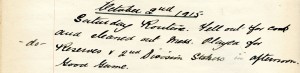 October 2nd 1915
Saturday Routine. Fell out for cook
and cleaned out Mess. Played for
-do- Reserves v 2nd Division Stokers in afternoon
Good Game.